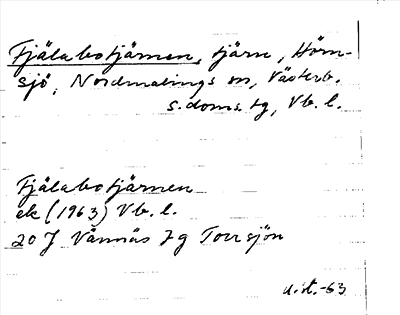 Fjälabotjärnen, tjärn, Hörn-
sjö, Nordmalings sn, Västerb.
s. doms. tg, Vb. l.
Fjälabotjärnen
ek (1963) Vb. l.
20 J Vännäs 7 g Torrsjön
u. st. -63